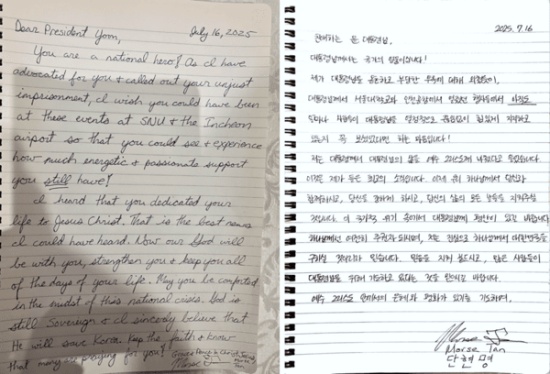 July 16, 2025
Dear President Yoon,
You are a national hero! As I have
advocated for you & called out your unjust
imprisonment, I wish you could have been
at these events at SNU & the Incheon
airport so that you could see & experience
how much energetic & passionate support
you still have!
I heard that you dedicated your
life to Jesus Christ. That is the best news
I could have heard. Now our God will
be with you, strengthen you & keep you all
of the days of your life. May you be comforted
in the midst of this national crisis. God is
still Sovereign & I sincerely believe that
He will save Korea. Keep the faith & know
that many are praying for you!
Morse Tan
2025. 7.16
친애하는 윤 대통령님,
대통령님께서는 국가의 영웅이십니다!
제가 대통령님을 옹호하고 부당한 구속에 대해 외쳤듯이,
대통령님께서 서울대학교와 인천공항에서 열렸던 행사들에서 아직도
얼마나 사람들이 대통령님을 열정적으로 지지하고
있는지 꼭 보셨었다면 하는 마음입니다!
저는 대통령님께서 대통령님의 삶을 예수 그리스도께 바쳤다고 들었습니다.
이것은 제가 들은 최고의 소식입니다. 이제 우리 하나님께서 당신과
함께하시고, 당신을 강하게 하시고, 당신의 삶의 모든 날들을 지켜주실
것입니다. 이 국가적 위기 중에서 대통령님께 평안이 있길 바랍니다.
하나님께선 여전히 주권자 되시며, 저는 진심으로 하나님께서 대한민국을
구하실 것이라고 믿습니다. 믿음을 지켜 주시고, 많은 사람들이
대통령님을 위해 기도하고 있다는 것을 알아주길 바랍니다.
예수 그리스도 안에서의 은혜와 평화가 있기를 기도하며,
Morse Tan
단현명